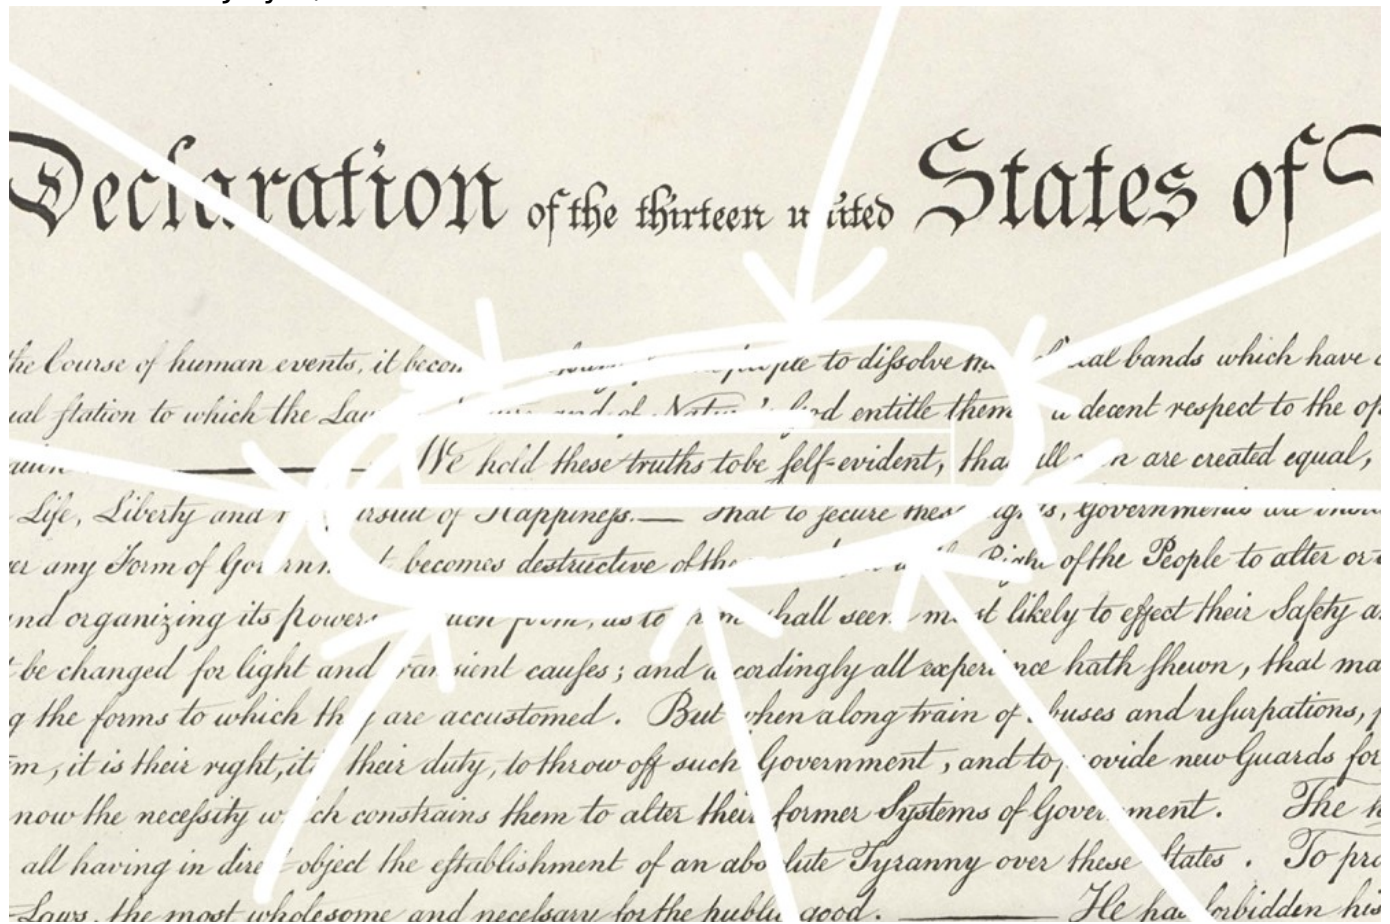 Declaration of the thirteen united States of
the Course of human events, it people to dissolve bands which have
station to which the and of entitle them a decent respect to the
We hold these truths to be self-evident, that all men are created equal,
Life, Liberty and of Happiness. — That to secure these rights, Governments are
any Form of becomes destructive of the Right of the People to alter or
and organizing its powers such form, as to them shall seem most likely to effect their Safety
be changed for light and transient causes; and accordingly all experience hath shewn, that
the forms to which they are accustomed. But when a long train of abuses and usurpations,
it is their right, it is their duty, to throw off such Government, and to provide new Guards for
now the necessity which constrains them to alter their former Systems of Government. The
all having in direct object the establishment of an absolute Tyranny over these States. To
Laws, the most wholesome and necessary for the public good. — He has forbidden his